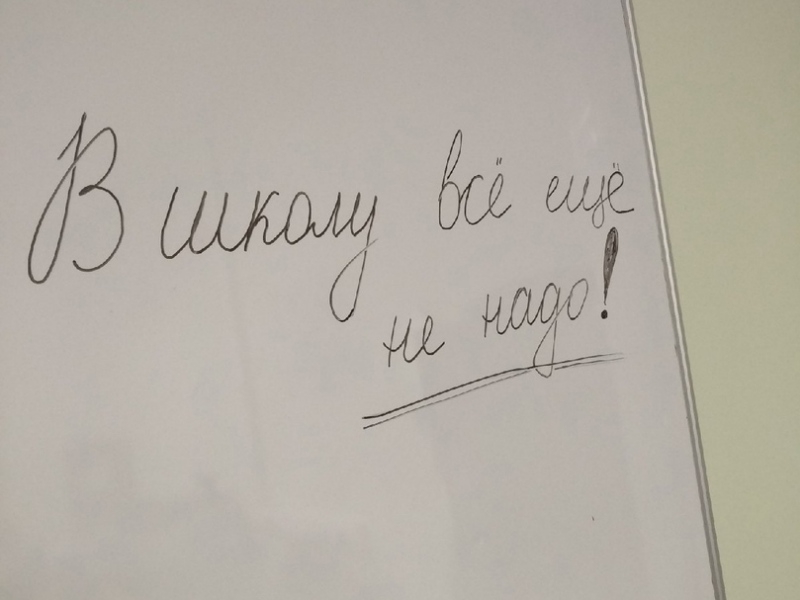 В школу всё ещё
не надо!